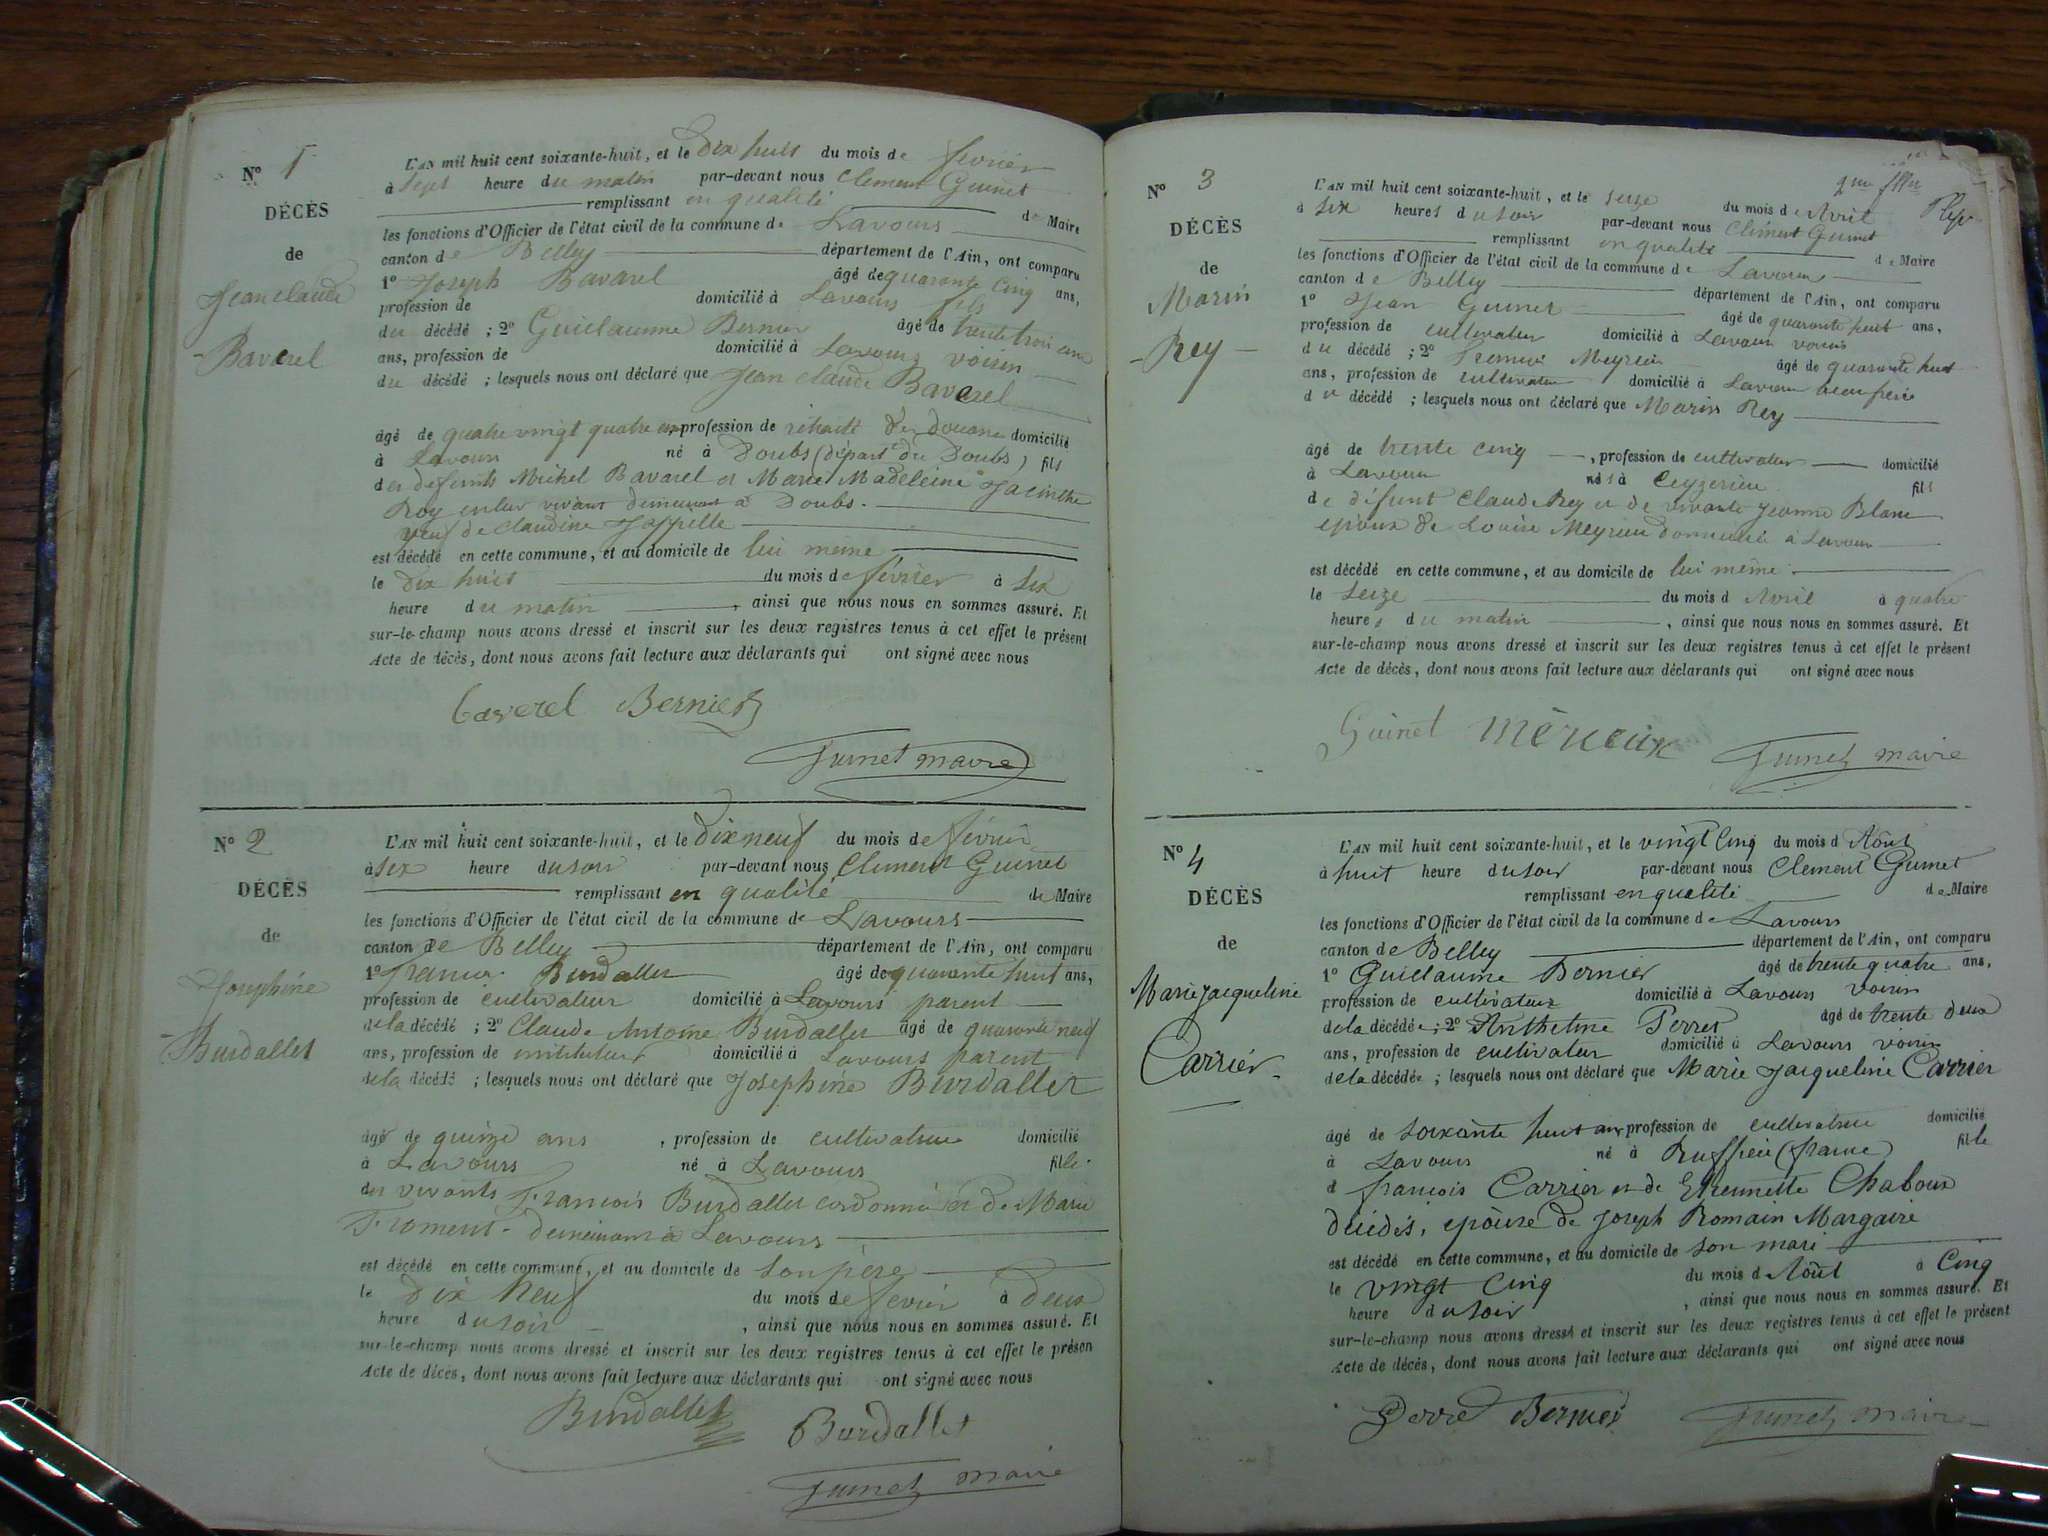 Nº 1
DÉCÈS
de
Jean claude
Baverel
L'AN mil huit cent soixante-huit, et le Dix huit du mois de février
à sept heure du matin par-devant nous Clement Guinet
remplissant en qualité de Maire
les fonctions d'Officier de l'état civil de la commune de Lavours
canton de Belley département de l'Ain, ont comparu
1º Joseph Bavarel âgé de quarante cinq ans,
profession de domicilié à Lavours fils
du décédé ; 2º Guillaume Bernier âgé de trente trois ans
ans, profession de domicilié à Lavours voisin
du décédé ; lesquels nous ont déclaré que Jean claude Baverel
âgé de quatre vingt quatre ans profession de retraité des douanes domicilié
à Lavours né à Doubs (départ du Doubs) fils
des defunts Michel Bavarel et Marie Madeleine Jacinthe
Roy en leur vivant demeurant à Doubs.
veuf de Claudine
est décédé en cette commune, et au domicile de lui même
le dix huit du mois de février à six
heure du matin , ainsi que nous nous en sommes assuré. Et
sur-le-champ nous avons dressé et inscrit sur les deux registres tenus à cet effet le présent
Acte de décès, dont nous avons fait lecture aux déclarants qui ont signé avec nous
baverel Bernier
Guinet maire
Nº 2
DÉCÈS
de
Josephine
Burdallet
L'AN mil huit cent soixante-huit, et le dix neuf du mois de février
à six heure du soir par-devant nous Clement Guinet
remplissant en qualité de Maire
les fonctions d'Officier de l'état civil de la commune de Lavours
canton de Belley département de l'Ain, ont comparu
1º Francois Burdallet âgé de quarante huit ans,
profession de cultivateur domicilié à Lavours parent
de la décédé ; 2º Claude Antoine Burdallet âgé de quarante neuf
ans, profession de instituteur domicilié à Lavours parent
de la décédé ; lesquels nous ont déclaré que Josephine Burdallet
âgé de quinze ans , profession de cultivatrice domicilié
à Lavours né à Lavours fille
des vivants Francois Burdallet cordonnier et de Marie
Froment demeurant à Lavours
est décédé en cette commune, et au domicile de son père
le Dix Neuf du mois de fevrier à deux
heure du soir , ainsi que nous nous en sommes assuré. Et
sur-le-champ nous avons dressé et inscrit sur les deux registres tenus à cet effet le présen
Acte de décès, dont nous avons fait lecture aux déclarants qui ont signé avec nous
Burdallet Burdallet
Guinet maire
Nº 3
DÉCÈS
de
Marin
Rey
L'AN mil huit cent soixante-huit, et le seize du mois d Avril
à six heures du soir par-devant nous Clément Guinet
remplissant en qualité de Maire
les fonctions d'Officier de l'état civil de la commune de Lavours
canton de Belley département de l'Ain, ont comparu
1º Jean Guinet âgé de quarante huit ans,
profession de cultivateur domicilié à Lavours voisin
du décédé ; 2º Francois Meyrieu âgé de quarante huit
ans, profession de cultivateur domicilié à Lavours beau frère
du décédé ; lesquels nous ont déclaré que Marin Rey
âgé de trente cinq , profession de cultivateur domicilié
à Lavours né à Ceyzerieu fils
de défunt Claude Rey et de vivante Jeanne Blanc
epoux de Louise Meyrieu domicilié à Lavours
est décédé en cette commune, et au domicile de lui même
le seize du mois d Avril à quatre
heures du matin , ainsi que nous nous en sommes assuré. Et
sur-le-champ nous avons dressé et inscrit sur les deux registres tenus à cet effet le présent
Acte de décès, dont nous avons fait lecture aux déclarants qui ont signé avec nous
Guinet mèrieux
Guinet maire
Nº 4
DÉCÈS
de
Marie Jacqueline
Carrier
L'AN mil huit cent soixante-huit, et le vingt Cinq du mois d Août
à huit heure du soir par-devant nous Clement Guinet
remplissant en qualité de Maire
les fonctions d'Officier de l'état civil de la commune de Lavours
canton de Belley département de l'Ain, ont comparu
1º Guillaume Bernier âgé de trente quatre ans,
profession de cultivateur domicilié à Lavours voisin
de la décédée ; 2º Anthelme Perret âgé de trente deux
ans, profession de cultivateur domicilié à Lavours voisin
de la décédée ; lesquels nous ont déclaré que Marie Jacqueline Carrier
âgé de soixante huit ans profession de cultivatrice domicilié
à Lavours né à Ruffieu (france) fille
d françois Carrier et de Etiennette Chaboux
décédés, epouse de Joseph Romain Margaire
est décédé en cette commune, et au domicile de son mari
le vingt Cinq du mois d Août à Cinq
heure du soir , ainsi que nous nous en sommes assuré. Et
sur-le-champ nous avons dressé et inscrit sur les deux registres tenus à cet effet le présent
Acte de décès, dont nous avons fait lecture aux déclarants qui ont signé avec nous
Perret Bernier Guinet maire